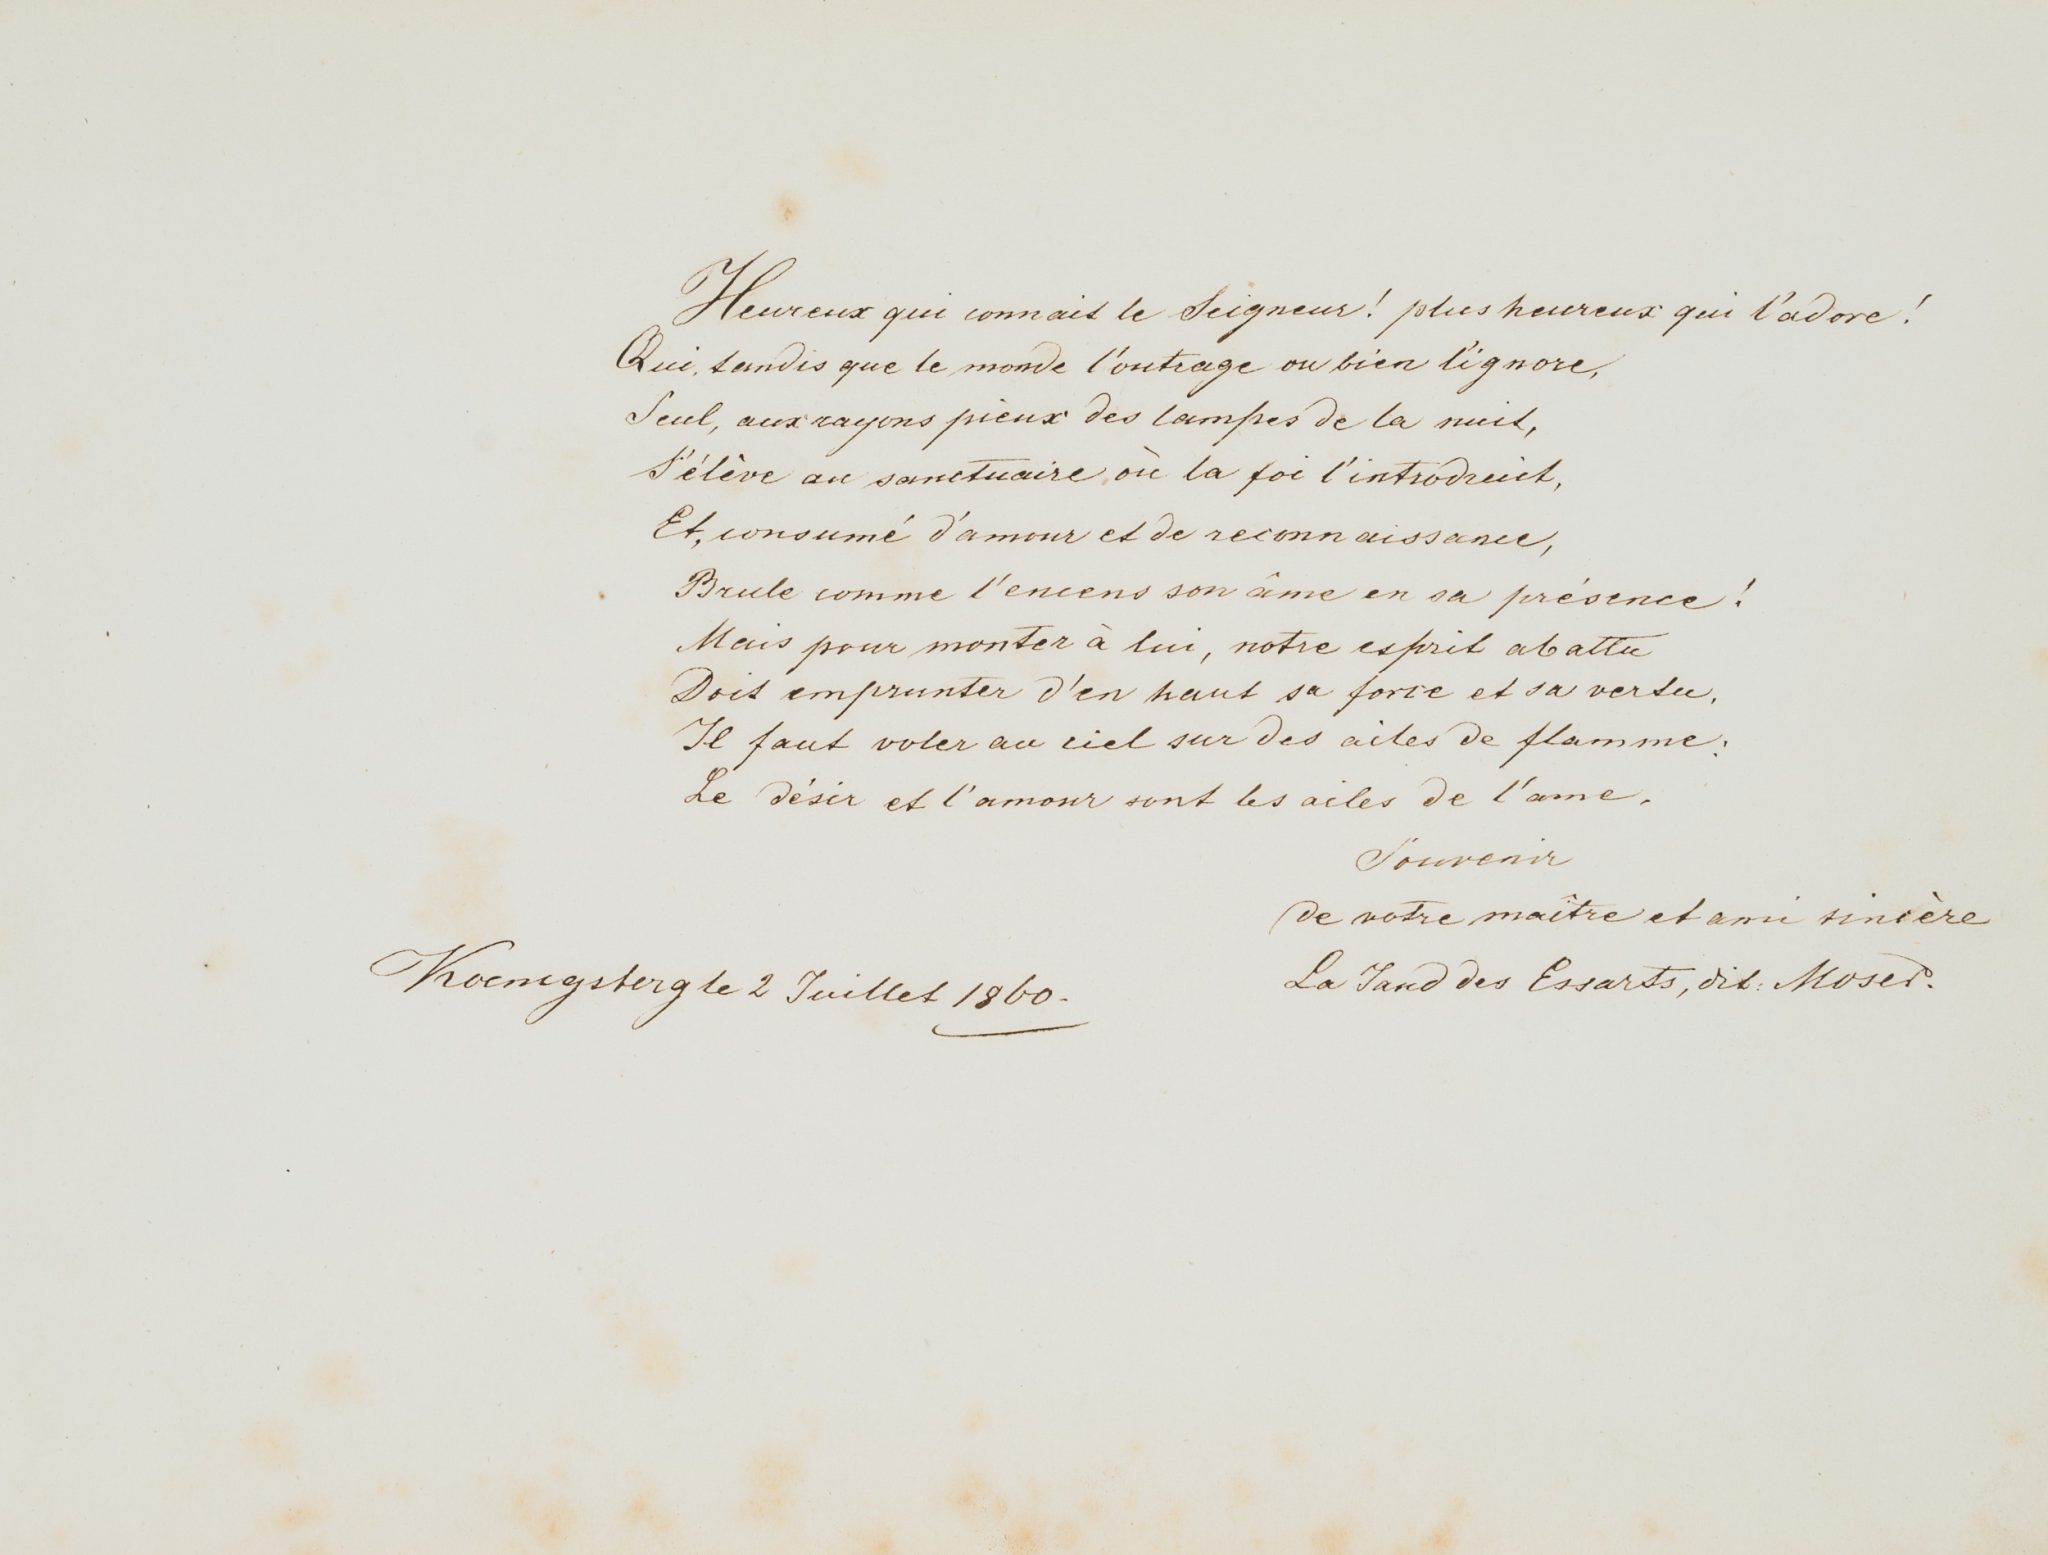 Heureux qui connait le Seigneur! plus heureux qui l'adore!
Qui, tandis que le monde l'outrage ou bien l'ignore,
Seul, aux rayons pieux des lampes de la nuit,
S'élève au sanctuaire où la foi l'introduit,
Et, consumé d'amour et de reconnaissance,
Brule comme l'encens son âme en sa présence!
Mais pour monter à lui, notre esprit abattu
Doit emprunter d'en haut sa force et sa vertu.
Il faut voler au ciel sur des ailes de flamme:
Le désir et l'amour sont les ailes de l'ame.
Souvenir
de votre maître et ami sincère
La des Essarts, dit: Moser.
Koenigsberg le 2 Juillet 1860.